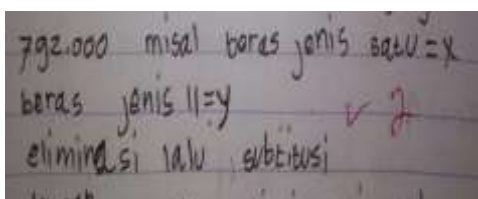 792.000 misal beras jenis satu = x
beras jenis II = y
✓ 2
eliminasi lalu subtitusi